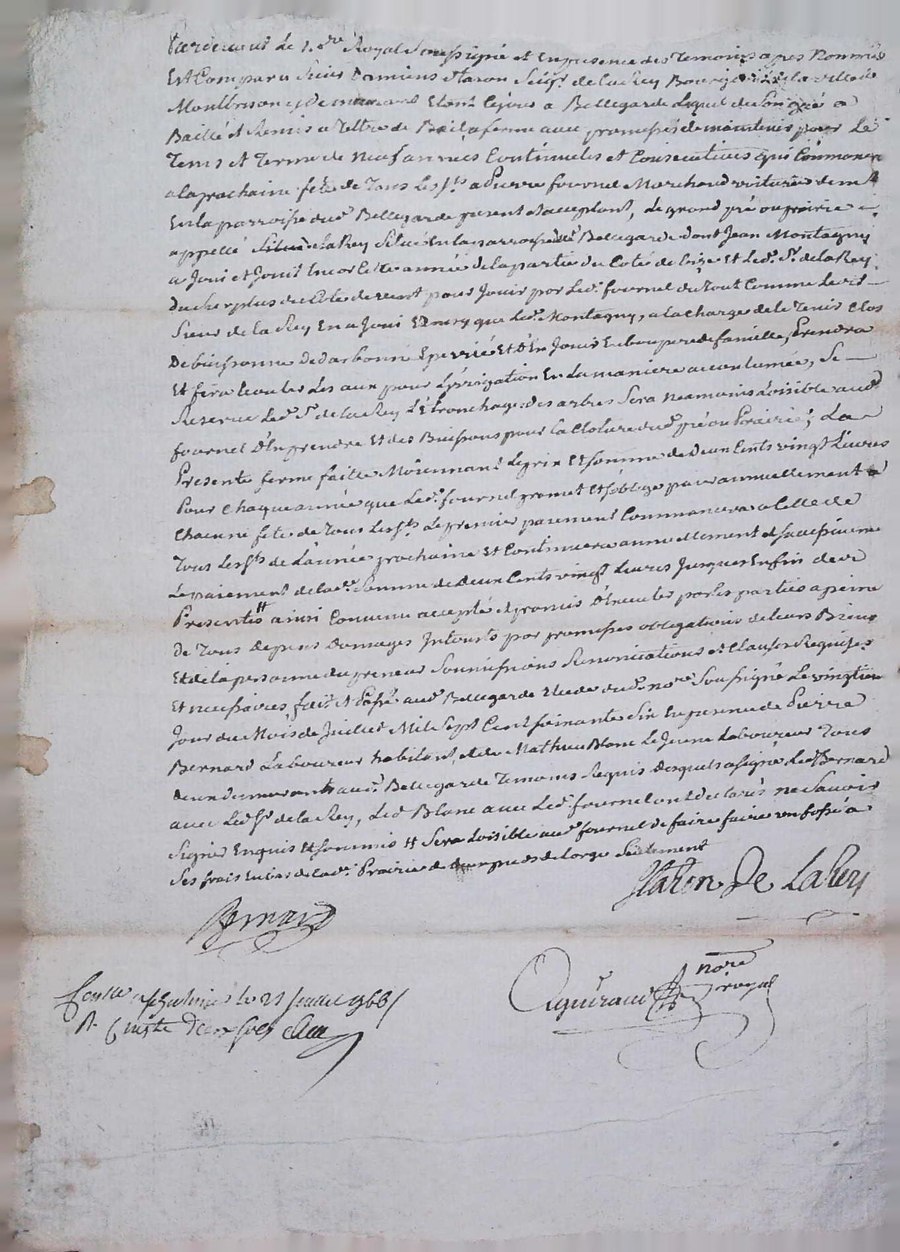 Pardevant Le n.re Royal Soussigné et En presence des Temoins apres Nommés
Est Comparu Sieur Damiens Staron Seigr de La Rey Bourgeois de la ville de
Montbrison y Demeurant Etant Cejour a Bellegarde Lequel de Son gré a
Baillé et Remis a Tiltre de Bail a ferme avec promesses de maintenir pour Le
Tems et Terme de Neuf années Continuelles et Consecutives qui Commencera
a la prochaine fete de Tous Les Sts a Pierre fournel Marchand voiturier demt
En la parroisse dud Bellegarde present et acceptant, Le grand pré ou prairie
appellé de la Rey Situé En la parroisse de Bellegarde dont Jean Montagny
a Joui et Jouit Encor Cette année de la partie du Coté de bize et Led. Sr. de la Rey
du Surplus du Coté de vent pour Jouir par Led. fournel du Tout Comme Led. sr
Sieur de la Rey En a Joui Et que Led. Montagny, a la charge de le Tenir Clos
De buissonne Epierré Et D'En Jouir En bon pere de famille, Prendra
Et fera Couler Les aux pour L'irrigation En La maniere accoutumée, Se
Reserve Led. Sr. de la Rey L'Etronchage des arbres Sera Neamoins Loisible aud
fournel D'En prendre Et des Buissons pour la Cloture dud pré ou Prairie; La
Presente ferme faitte Moiennant Le prix Et Somme de Deux Cents vingt Livres
Pour Chaque année que Led. fournel promet Et S'oblige paier annuellement a
Chacune fete de Tous Les Sts Le premier paiement Commencera a Celle de
Tous Les Sts de L'année prochaine Et Continuera annuellement
Le paiement de lad. Somme de Deux Cents vingt Livres Jusques En fin de
Presentes # ainsi Convenu accepté et promis D'Executer par les parties a peine
De Tous Depens Domages Interets par promesses obligations de Leurs Biens
Et de la personne du preneur Soumissions Renonciations et Clauses Requises
Et necessaires fait et Passé aud. Bellegarde Etude dud. nore Soussigné Le vingtieme
Jour du Mois de Juillet Mil Sept Cent Soixante Six En presence de Pierre
Bernard Laboureur habitant et de Mathieu Blanc Le Jeune Laboureur Tous
deux demeurants aud. Bellegarde Temoins Requis Desquels a Signé Led. Bernard
avec Led. Sr de la Rey, Led. Blanc avec Led. fournel ont Declarés ne Savoir
Signer Enquis Et Sommés # Sera Loisible aud fournel de faire faire un fossé a
Ses frais En bas de lad. Prairie de deux pieds de Large Seulement
Staron De LaRey
Bernard
Aguiraud
nore
royal
le 21 Juillet 1766
R. sols